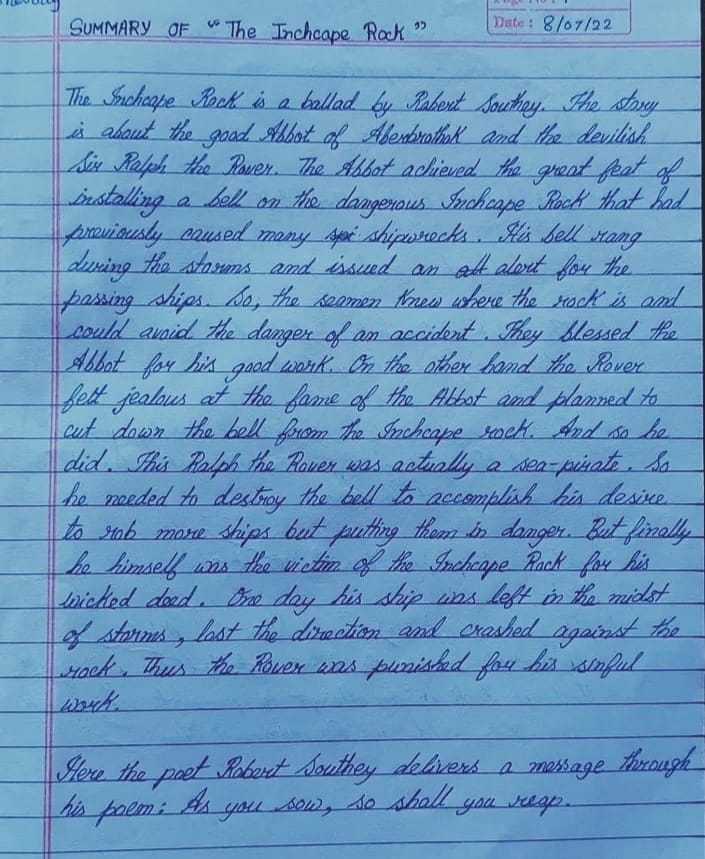 SUMMARY OF "The Inchcape Rock"
Date: 8/07/22
The Inchcape Rock is a ballad by Robert Southey. The story
is about the good Abbot of Aberbrothok and the devilish
Sir Ralph the Rover. The Abbot achieved the great feat of
installing a bell on the dangerous Inchcape Rock that had
previously caused many shipwrecks. His bell rang
during the storms and issued an alert for the
passing ships. So, the seamen knew where the rock is and
could avoid the danger of an accident. They blessed the
Abbot for his good work. On the other hand the Rover
felt jealous at the fame of the Abbot and planned to
cut down the bell from the Inchcape rock. And so he
did. This Ralph the Rover was actually a sea-pirate. So
he needed to destroy the bell to accomplish his desire
to rob more ships but putting them in danger. But finally
he himself was the victim of the Inchcape Rock for his
wicked deed. One day his ship was left in the midst
of storms, lost the direction and crashed against the
rock. Thus the Rover was punished for his sinful
work.
Here the poet Robert Southey delivers a message through
his poem: As you sow, so shall you reap.